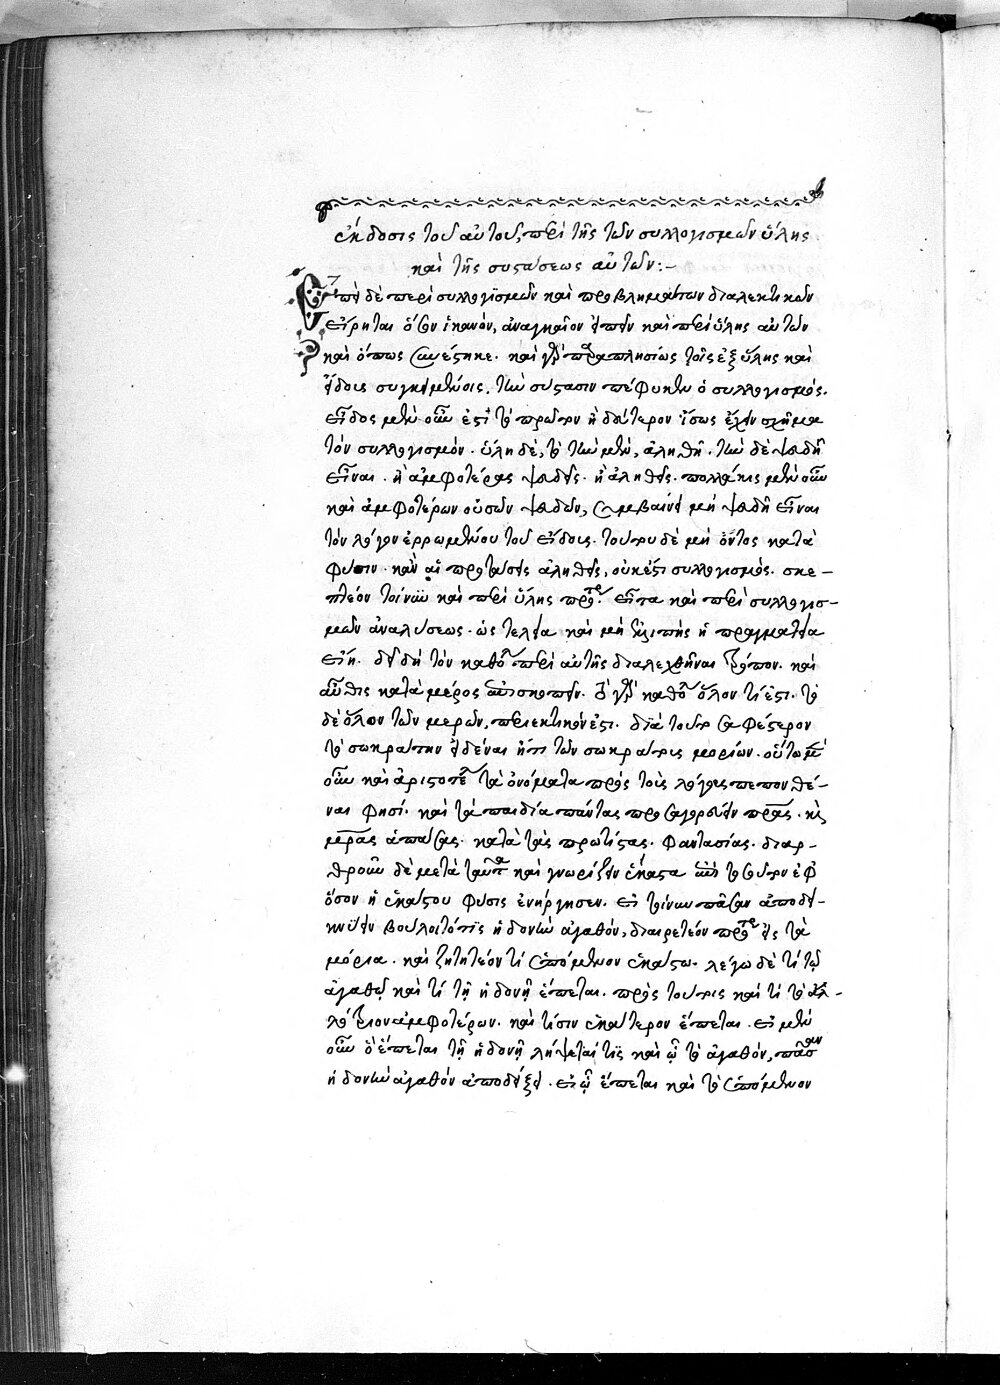 ἔκδοσις τοῦ αὐτοῦ, περὶ τῆς τῶν συλλογισμῶν ὕλης
καὶ τῆς συστάσεως αὐτῶν:-
Ἐπεὶ δὲ περὶ συλλογισμῶν καὶ προβλημάτων διαλεκτικῶν
εἴρηται ὅσον ἱκανόν, ἀναγκαῖον εἰπεῖν καὶ περὶ ὕλης αὐτῶν
καὶ ὅπως συνέστηκε. καὶ γὰρ παραπλησίως τοῖς ἐξ ὕλης καὶ
εἴδους συγκειμένοις, τὴν σύστασιν πέφυκεν ὁ συλλογισμός.
εἶδος μὲν οὖν ἐστὶ τὸ πρῶτον ἢ δεύτερον ἴσως ἔχειν σχῆμα
τὸν συλλογισμόν. ὕλη δὲ, τὸ τὴν μὲν, ἀληθῆ. τὴν δὲ ψευδῆ
εἶναι. ἢ ἀμφοτέρας ψευδεῖς. ἢ ἀληθεῖς. πολλάκις μὲν οὖν
καὶ ἀμφοτέρων οὐσῶν ψευδῶν, συμβαίνει μὴ ψευδῆ εἶναι
τὸν λόγον ἐρρωμένου τοῦ εἴδους. τούτου δὲ μὴ ὄντος κατὰ
φύσιν. κἂν αἱ προτάσεις ἀληθεῖς, οὐκέτι συλλογισμός. σκε-
πτέον τοίνυν καὶ περὶ ὕλης πρότερον. εἶτα καὶ περὶ συλλογισ-
μῶν ἀναλύσεως. ὡς τελεία καὶ μὴ ἐλλιπὴς ἡ πραγματεία
εἴη. δεῖ δὴ τὸν καθόλου περὶ αὐτῆς διαλεχθῆναι τρόπον. καὶ
αὖθις κατὰ μέρος ἐπισκοπεῖν. τὸ γὰρ καθόλου ὅλον τί ἐστι. τὸ
δὲ ὅλον τῶν μερῶν, περιεκτικόν ἐστι. διὰ τοῦτο σαφέστερον
τὸ σωκράτην εἰδέναι ἤπερ τῶν σωκράτους μορίων. οὕτω μὲν
οὖν καὶ ἀριστοτέλης τὰ ὀνόματα πρὸς τοὺς λόγους πεπονθέ-
ναι φησί. καὶ τὰ παιδία πάντας προσαγορεύειν πατέρας. καὶ
μητέρας ἁπάσας. κατὰ τὰς πρωτίστας. φαντασίας. διαρ-
θροῦν δὲ μετὰ ταῦτα καὶ γνωρίζειν ἕκαστα ἐπὶ τοσοῦτον ἐφ
ὅσον ἡ ἑκάστου φύσις ἐνήργησεν. εἰ τοίνυν πᾶσαν ἀποδει-
κνύειν βούλοιτό τις ἡδονὴν ἀγαθόν, διαιρετέον πρότερον εἰς τὰ
μόρια. καὶ ζητητέον τί ἑπόμενον ἑκάστῳ. λέγω δὲ τί τῷ
ἀγαθῷ καὶ τί τῇ ἡδονῇ ἕπεται. πρὸς τούτοις καὶ τί τὸ ἀλ-
λότριον ἀμφοτέρων. καὶ τίσιν ἑκάτερον ἕπεται. εἰ μὲν
οὖν ὃ ἕπεται τῇ ἡδονῇ λήψεταί τις καὶ ᾧ τὸ ἀγαθόν, πᾶσαν
ἡδονὴν ἀγαθὸν ἀποδείξει. εἰ ᾧ ἕπεται καὶ τὸ ἑπόμενον